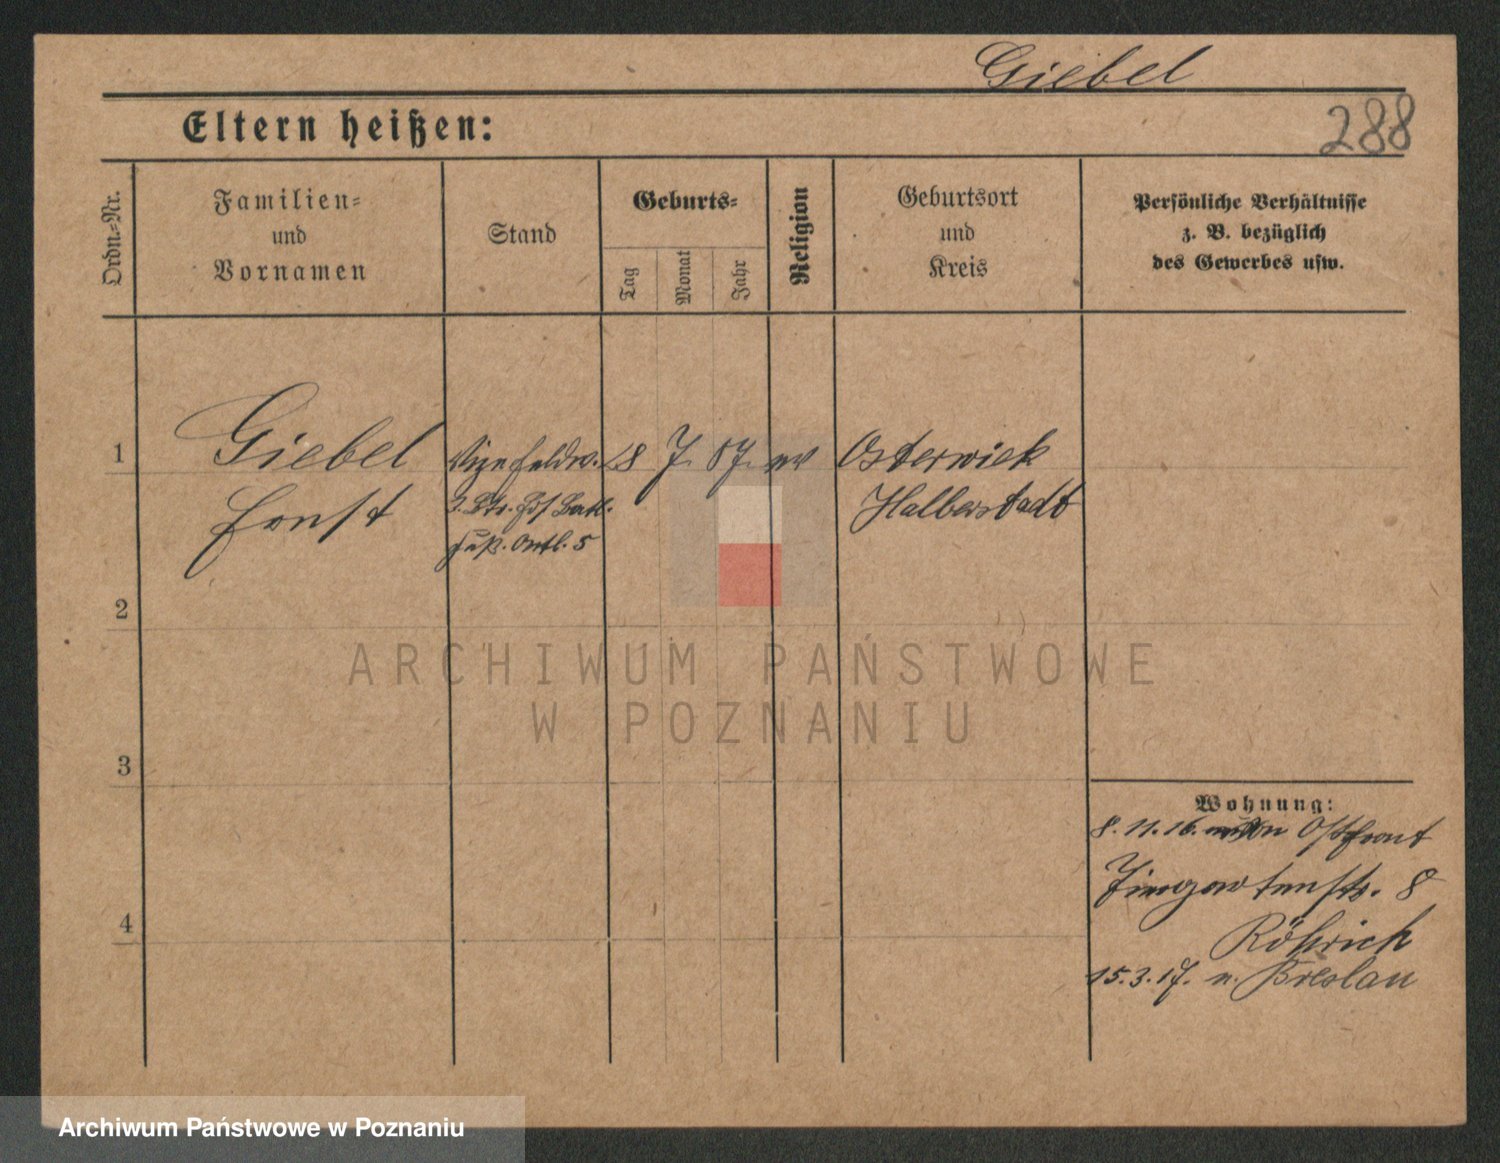 Giebel
288
Eltern heißen:
Ordn.-Nr.
Familien-
und
Vornamen
Stand
Geburts-
Tag
Monat
Jahr
Religion
Geburtsort
und
Kreis
Persönliche Verhältnisse
z. B. bezüglich
des Gewerbes usw.
1
Giebel
Ernst
Vizefeldw.
Fuß. Artl. 5
18 7. 87. ev
Osterwiek
Halberstadt
2
ARCHIWUM PAŃSTWOWE
W POZNANIU
3
Wohnung:
8.11.16. von Ostfront
Tiergartenstr. 8
Röhrich
15.3.17. n. Breslau
4
Archiwum Państwowe w Poznaniu